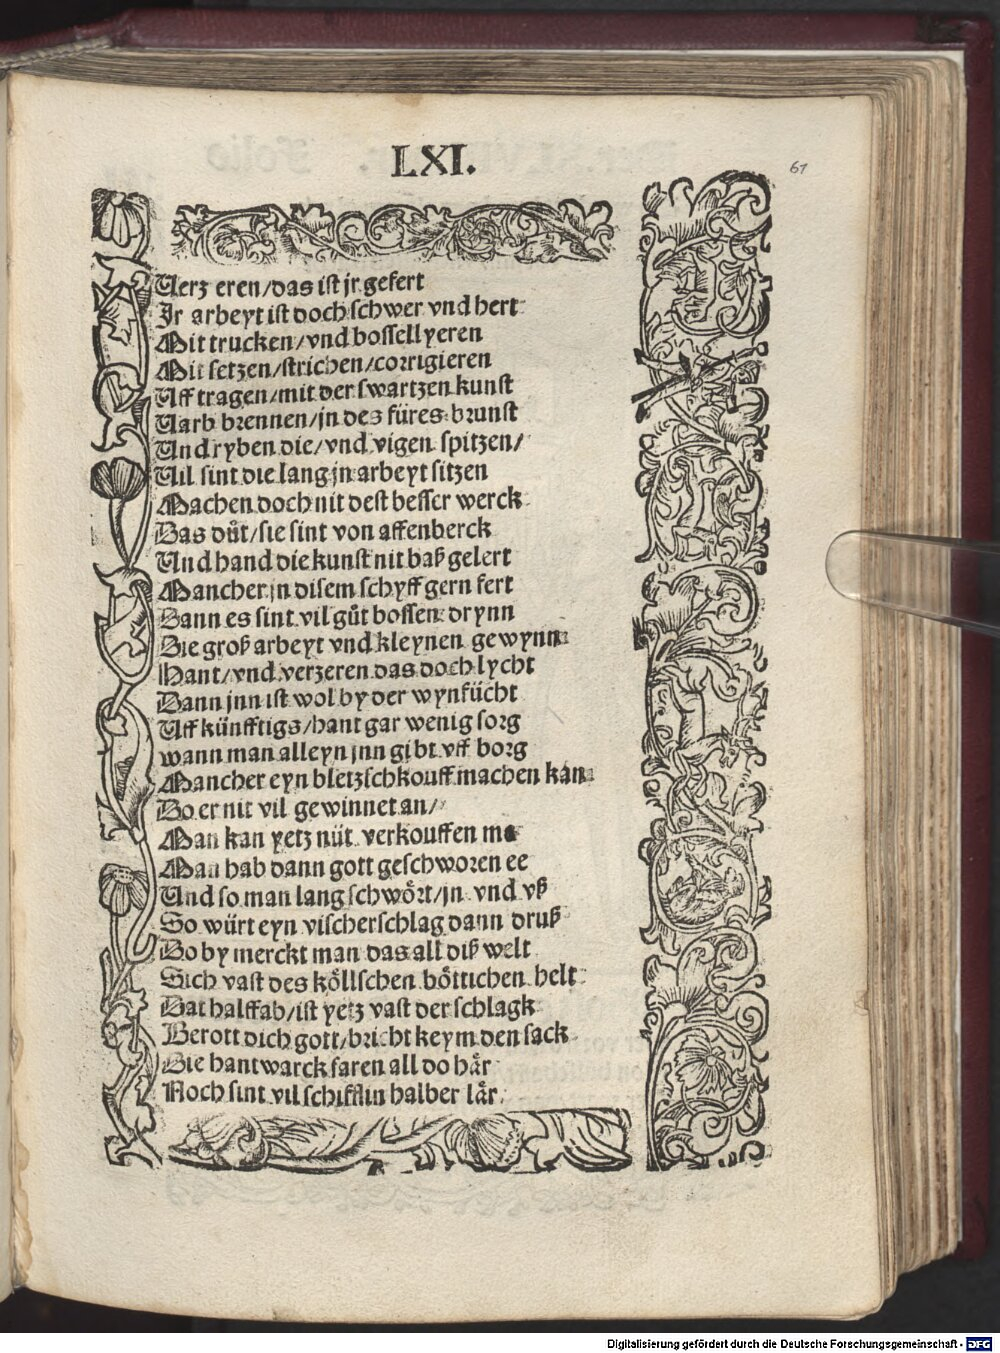 LXI.
61
Uerzeren/das ist jr gefert
Jr arbeyt ist doch schwer vnd hert
Mit trucken/vnd bossellyeren
Mit setzen/strichen/corrigieren
Uff tragen/mit der swartzen kunst
Uarb brennen/jn des füres brunst
Und ryben die/vnd vigen spitzen/
Uil sint die lang jn arbeyt sitzen
Machen doch nit dest besser werck
Das důt/sie sint von affenberck
Und hand die kunst nit baß gelert
Mancher jn disem schyff gern fert
Dann es sint vil gůt bossen drynn
Die groß arbeyt vnd kleynen gewynn
Hant/vnd verzeren das doch lycht
Dann jnn ist wol by der wynfücht
Uff künfftigs/hant gar wenig sorg
wann man alleyn jnn gibt vff borg
Mancher eyn bletzschkouff machen kan
Do er nit vil gewinnet an/
Man kan yetz nüt verkouffen me
Man hab dann gott geschworen ee
Und so man lang schwört/jn vnd vß
So würt eyn vischerschlag dann druß
Do by merckt man das all diß welt
Sich vast des köllschen böttichen helt
Dat halff ab/ist yetz vast der schlagk
Berott dich gott/bricht keym den sack
Die hantwarck faren all do hår
Noch sint vil schifflin halber lår
Digitalisierung gefördert durch die Deutsche Forschungsgemeinschaft - DFG